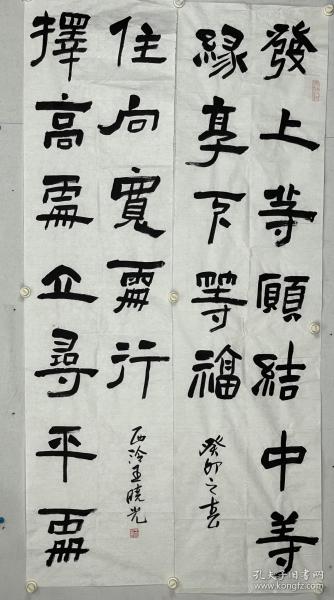 發上等願結中等
緣享下等福
癸卯之春
擇高處立尋平處
住向寬處行
西泠王曉光
孔夫子旧书网